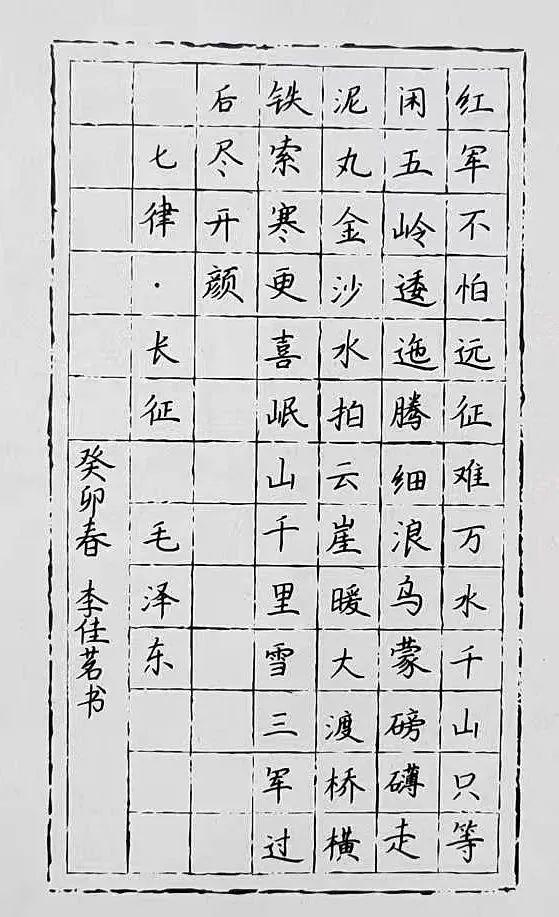 红军不怕远征难万水千山只等
闲五岭逶迤腾细浪乌蒙磅礴走
泥丸金沙水拍云崖暖大渡桥横
铁索寒更喜岷山千里雪三军过
后尽开颜
七律·长征 毛泽东
癸卯春 李佳茗书